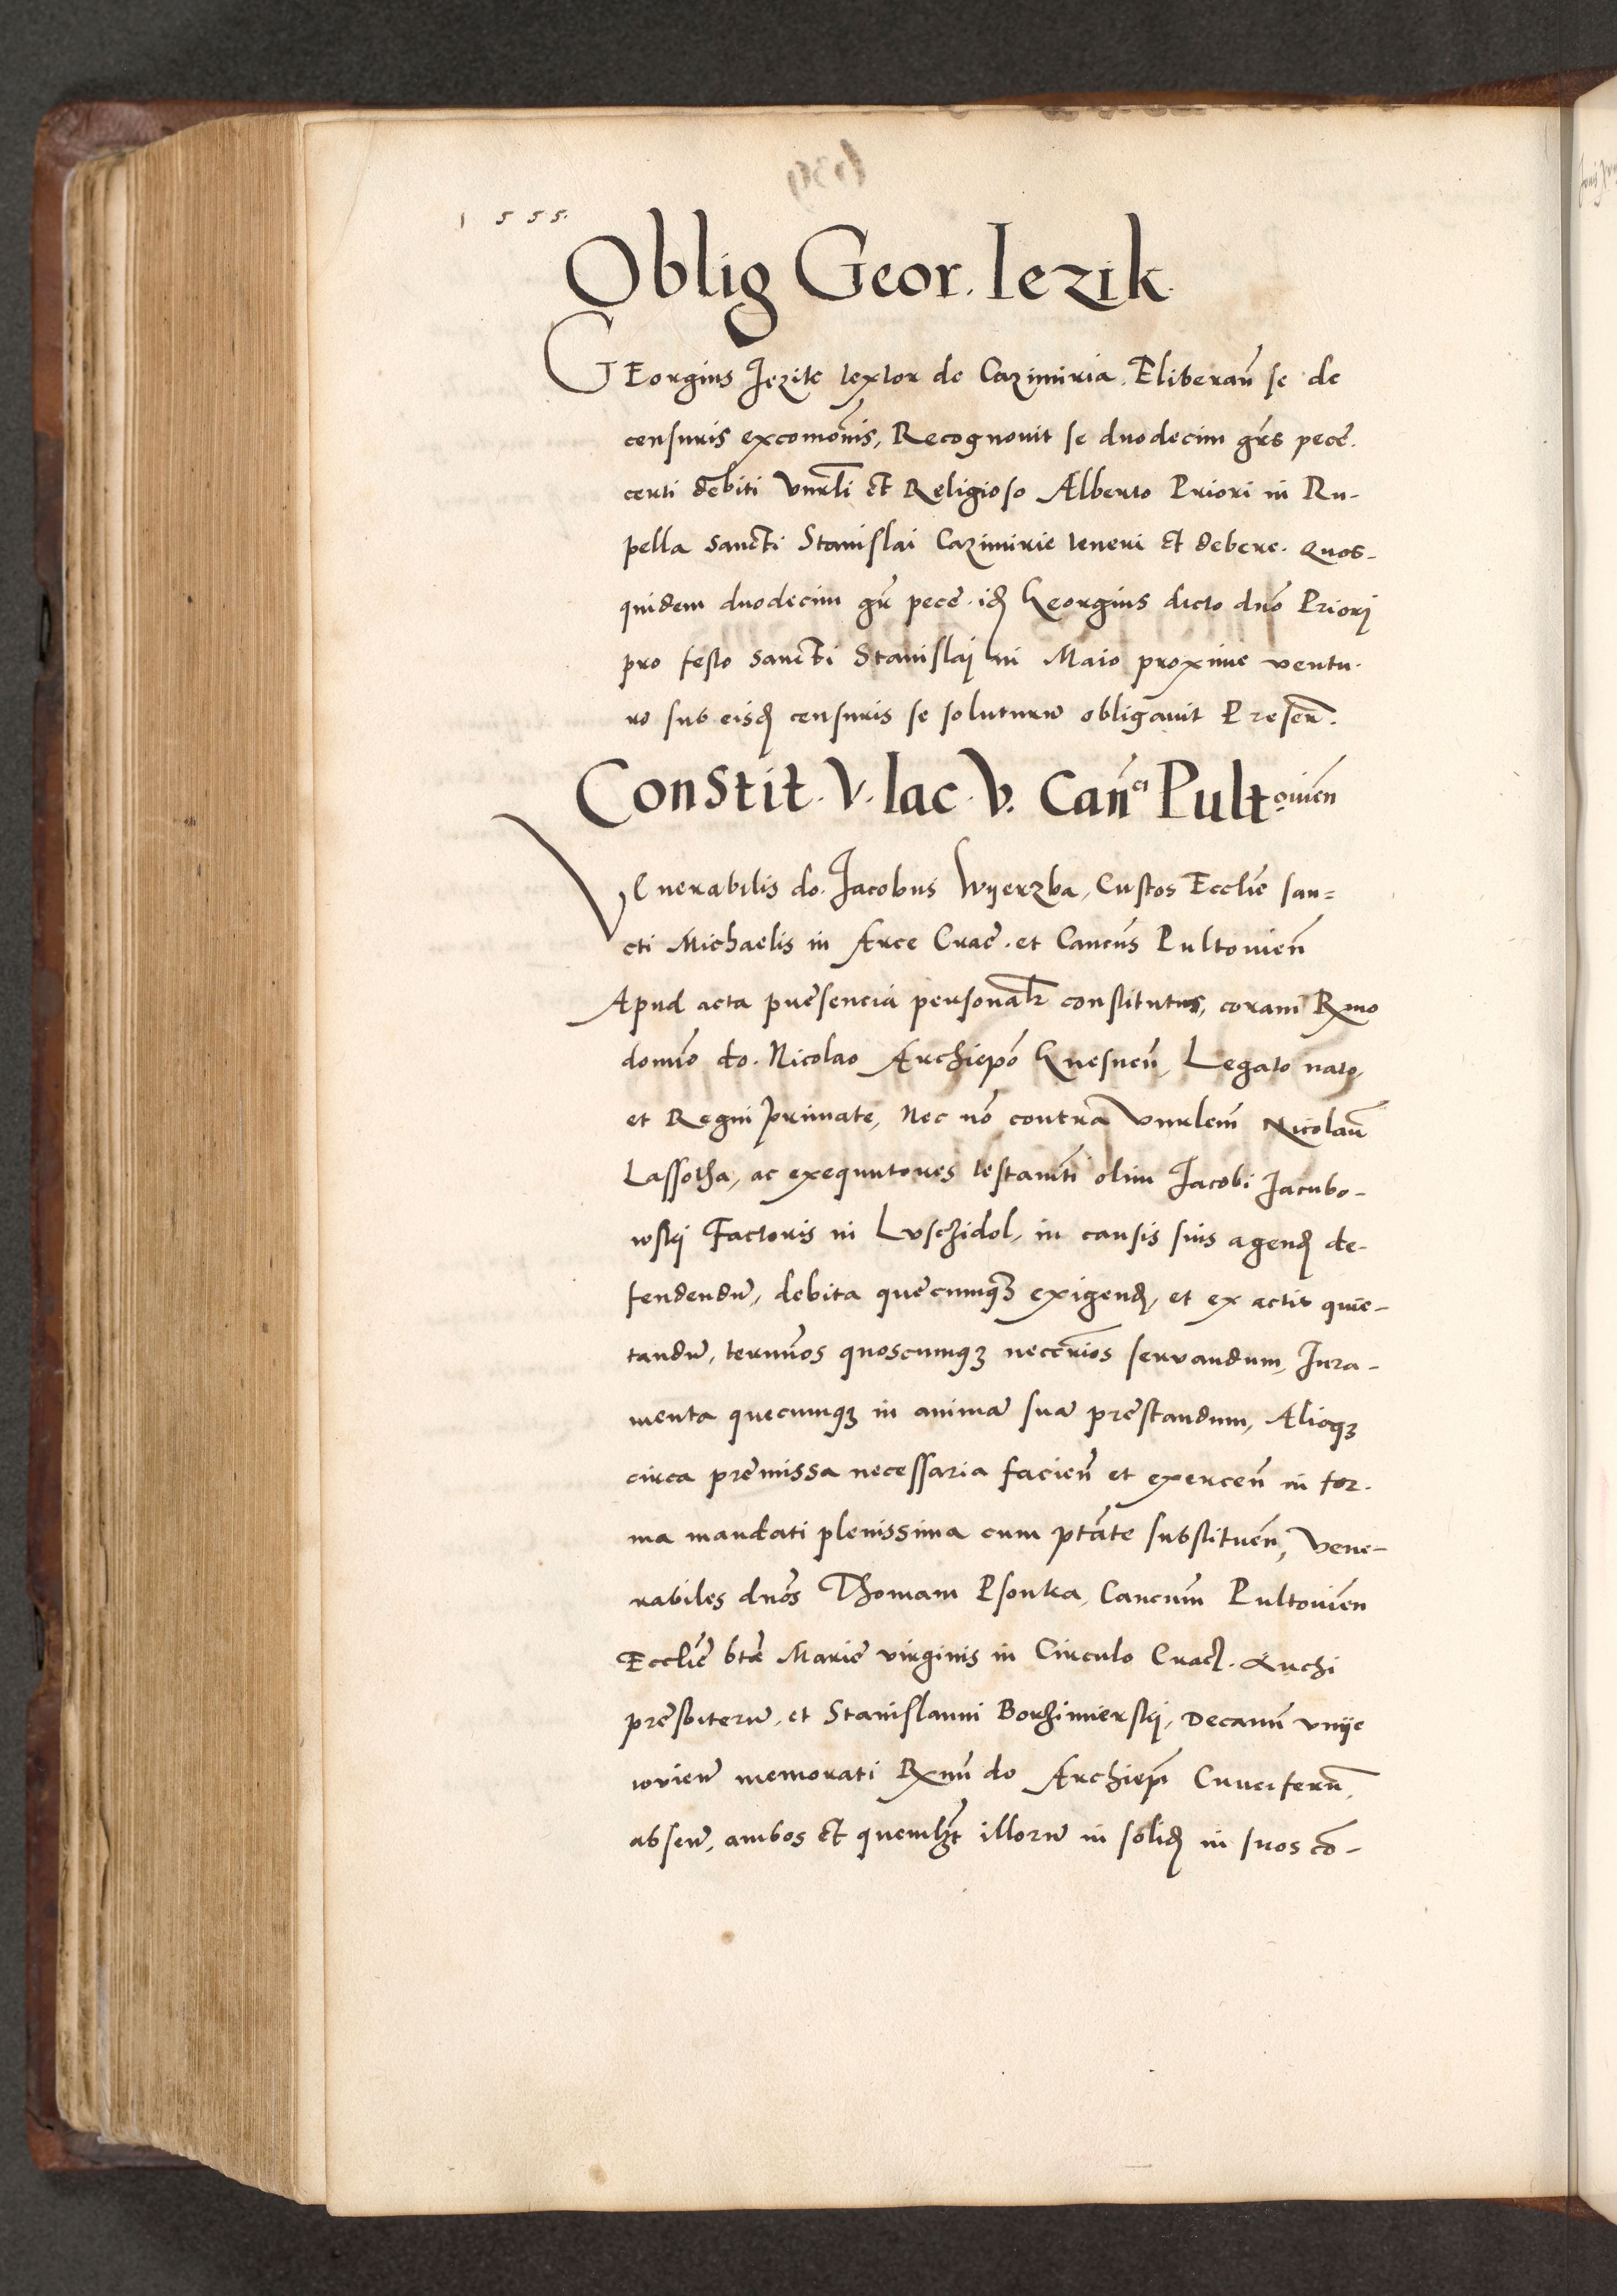 1555.
Oblig Geor. Iezik.
GEorgius Jezik textor de Cazimiria. Eliberan̄ se de
censuris excomōnis, Recognovit se duodecim gr̄s pecē.
certi debiti Vnrl̄i et Religioso Alberto Priori in Ru-
pella sancti Stanislai Cazimirie teneri et debere. Quos-
quidem duodecim gr̄ pecē. idē Georgius dicto dnō Priorj
pro festo sancti Stanislaj in Maio proxime ventu-
ro sub eisd̄ censuris se soluturū obligavit Presen̄.
Constit. V. Iac. V. Can̄ci Pultovien̄
VEnerabilis do. Jacobus Wyerzba, Custos Ecclīe san=
cti Michaelis in Arce Crac̄. et Canc̄us Pultovien̄
Apud acta presencia personalr̄ constitutus, coram Rxmo
domīo do. Nicolao Archiepō Gnesnen̄, Legato nato,
et Regni primate, Nec nō contra Vnrlem̄ Nicolaū
Lassotha, ac exequutores testamn̄ti olim Jacobi Jacubo-
wskj Factoris in Lvschidol, in causis suis agend̄ de-
fendendū, debita quecumqȝ exigend̄, et ex actis quie-
tandū, termīos quoscumqȝ neccr̄ios servandum, Jura-
menta quecumqȝ in animā suā prestandum, Aliaqȝ
circa premissa necessaria facien̄ et exercen̄ in for-
ma mandati plenissima cum ptāte substituen̄, Vene-
rabiles dnōs Thomam Psonka, Cancum̄ Pultovien̄
Ecclīe btē Marie virginis in Circulo Crac̄. Archi
presbiterū, et Stanislaum Borzimierskj, Decanū vnije
iovien̄ memorati Rxmi do Archiepī Cruciferū,
absen̄, ambos et quemlȝt illorū in solid̄ in suos cō-